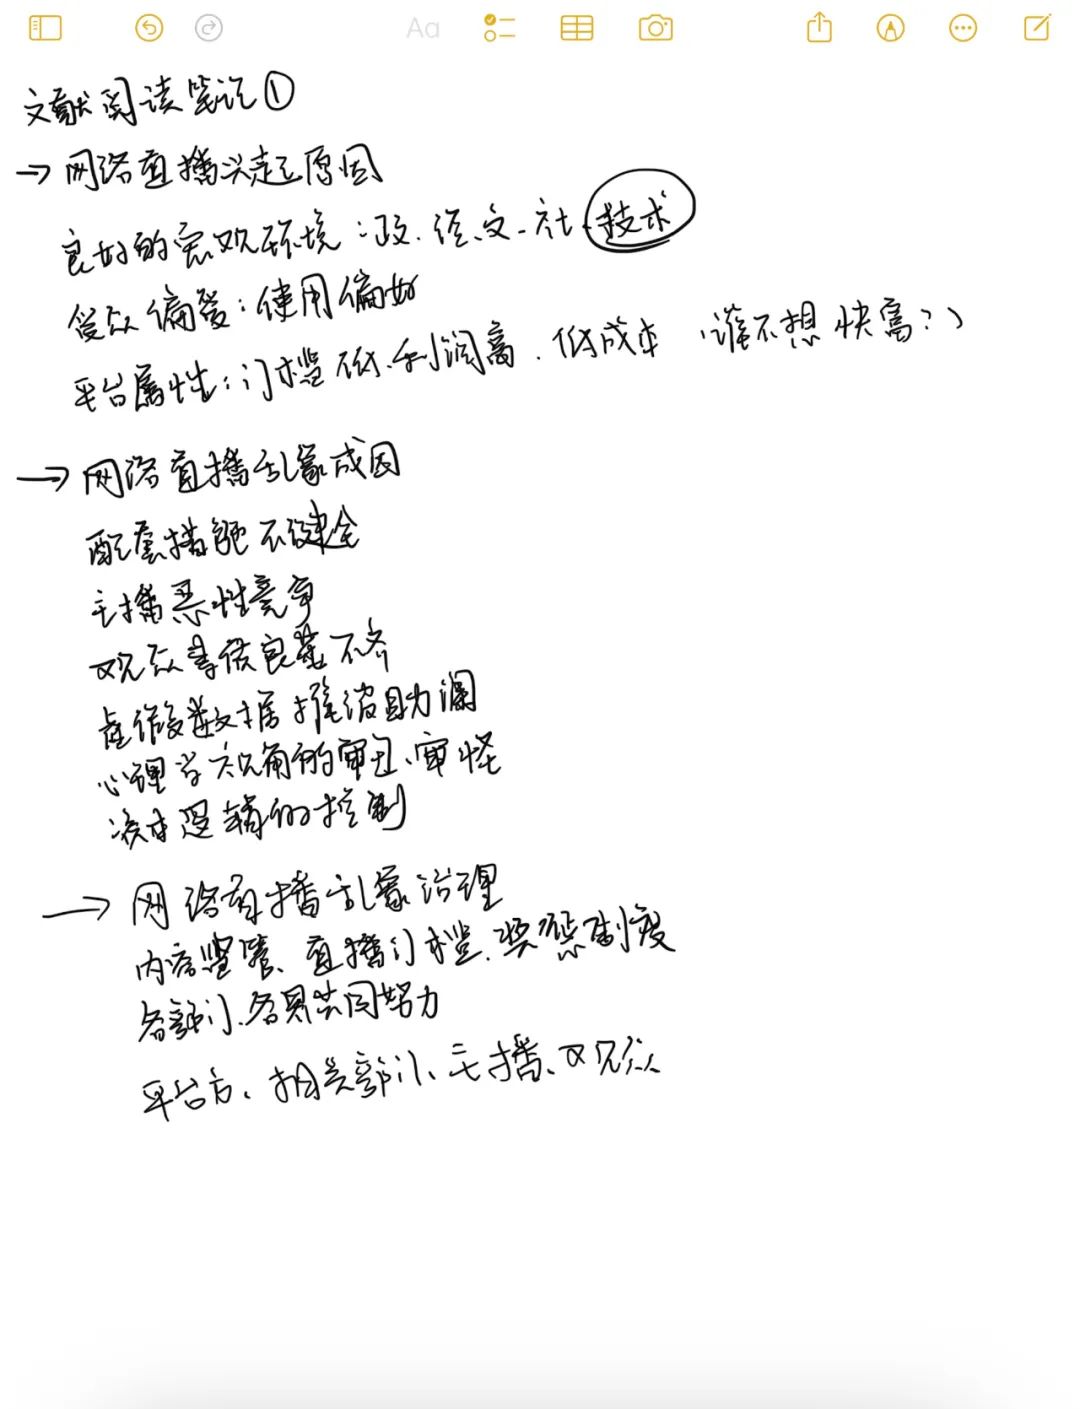 Aa
文献阅读笔记①
→网络直播兴起原因
良好的宏观环境：政、经、文、社、技术
受众偏爱：使用偏好
平台属性：门槛低、利润高、低成本（谁不想快富？）
→网络直播乱象成因
配套措施不健全
主播恶性竞争
观众素质良莠不齐
虚假数据推波助澜
心理学视角的审丑、审怪
资本逻辑的控制
→网络直播乱象治理
内容监管、直播门槛、奖惩制度
各部门、各界共同努力
平台方、相关部门、主播、观众